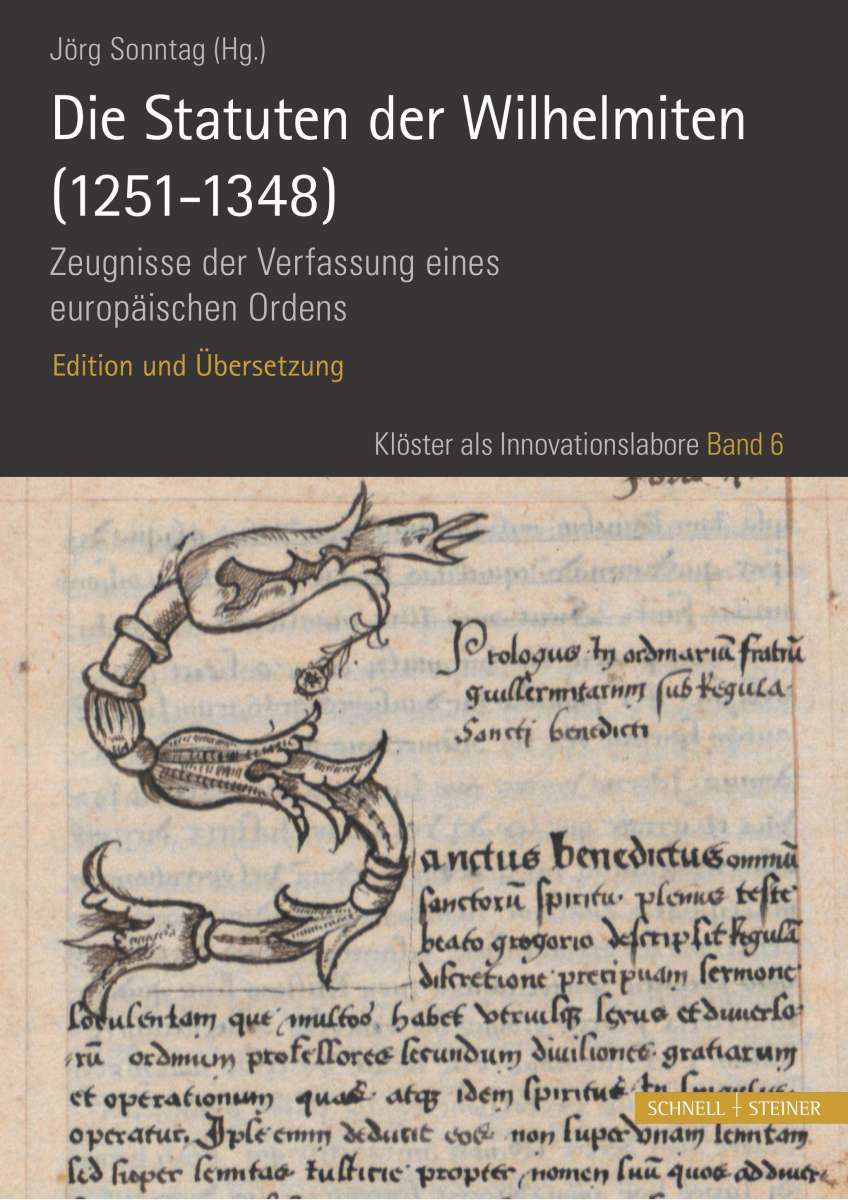 Jörg Sonntag (Hg.)
Die Statuten der Wilhelmiten
(1251–1348)
Zeugnisse der Verfassung eines
europäischen Ordens
Edition und Übersetzung
Klöster als Innovationslabore Band 6
Prologus In ordinariū fratrū
guillermitarum sub Regula
Sancti benedicti
Sanctus benedictus omniū
sanctorū spiritu plenus teste
beato gregorio descripsit Regulā
discretione precipuam sermone
loculentam que multos habet utriusq sexus et diuerso
rū ordinum professores secundum diuisiones gratiarum
et operationum quas atq idem spiritus In
operatur. Ipse enim deducit eos non super unam semitam
sed super semitas iusticie propter nomen suū quos
SCHNELL + STEINER